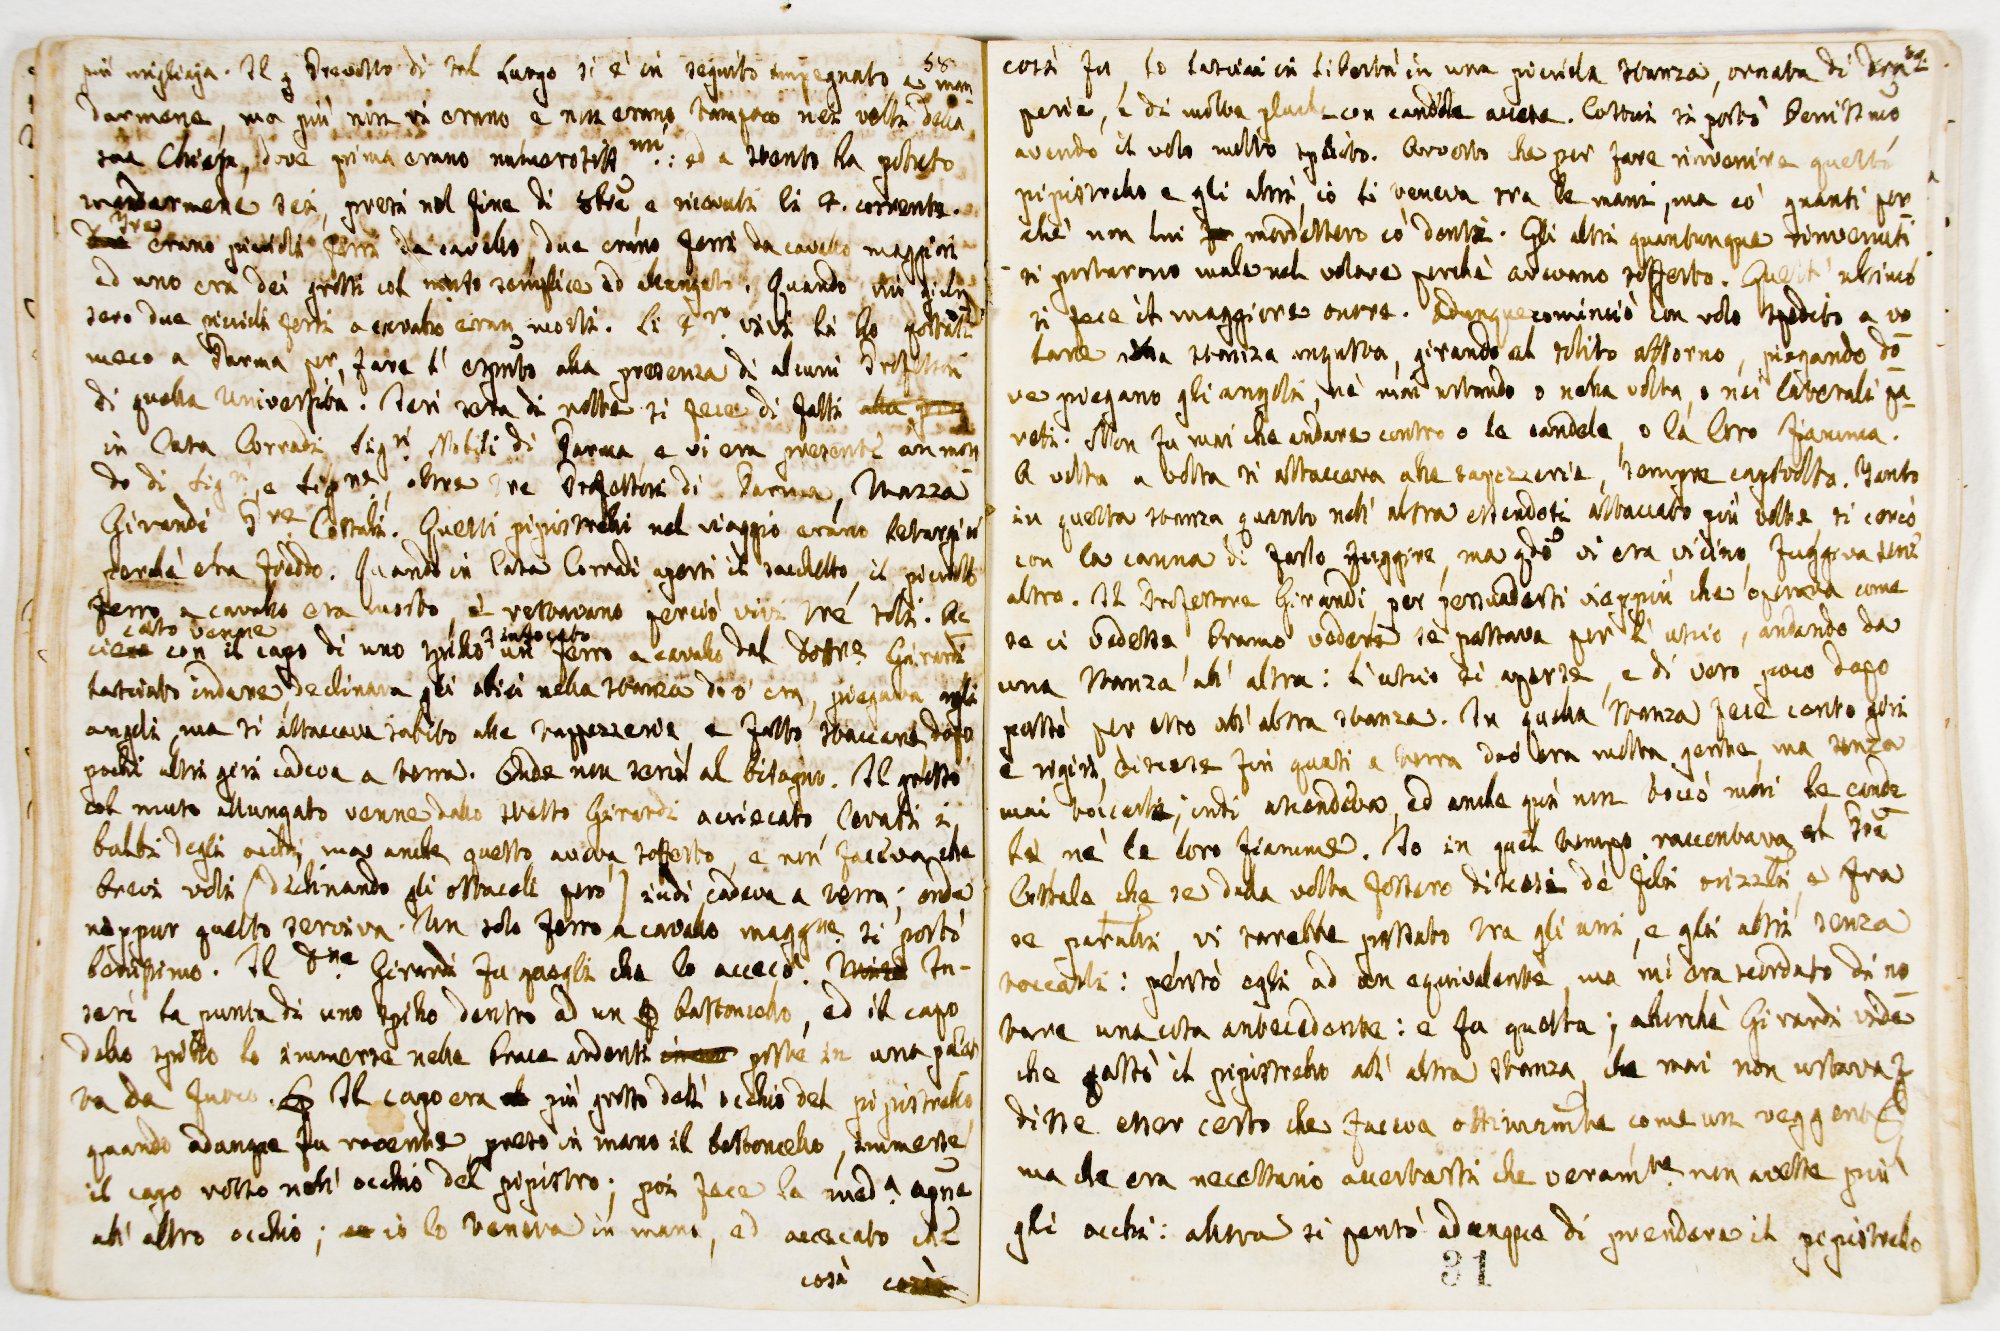 58
più migliaja. Il Prevosto di tal luogo si è in seguito impegnato a man-
darmene, ma più non vi erano e non erano tampoco nei volti della
sua Chiesa, dove prima erano numerosissmi: ed a stento ha potuto
mandarmene sei, presi nel fine di 8bre, e ricevuti li 4. corrente.
Tre erano piccioli ferri da cavallo, due erano ferri da cavallo maggiori
ed uno era dei grossi col muto semplice ed allungato. Quando mi
sero due piccioli ferri a cavallo eran morti. Li 4ro vivi li ho portati
meco a Parma per fare l'esprito alla presenza di alcuni Professori
di quella Università. Ieri sera di notte si fece di fatti
in Casa Corradi Sigri Nobili di Parma e vi era presente un mon
do di Sigri e Signe, oltre tre Professori di Parma, Mazza
Girardi Pre Cossali. Questi pipistrelli nel viaggio erano letargici
perchè era freddo. Quando in Casa Corradi apersi il sacchetto, il picciolo
ferro a cavallo era morto, e restavano perciò vivi tre soli. Ac
ciecato venne con il capo di uno spillo infocato un ferro a cavallo dal Dottre Girardi
lasciato andare, declinava gli obici nella stanza do' era, piegava agli
angoli, ma si attaccava subito alle tappezzerie, e fatto staccare dopo
pochi altri giri cadeva a terra. Onde non servì al bisogno. Il grosso
col muto allungato venne dallo stesso Girardi acciecato, levati i
bulbi degli occhi, ma anche questo aveva sofferto, e non faceva che
brevi voli (declinando gli ostacoli però) indi cadeva a terra; onde
neppur questo serviva. Un solo ferro a cavallo maggre si portò
benissimo. Il Dre Girardi fu quegli che lo accecò. In-
serì la punta di uno spillo dentro ad un bastoncello, ed il capo
dello spillo lo immerse nelle brace ardenti poste in una palet
ta da fuoco. Il capo era più grosso dell'occhio del pipistrello
quando adunque fu rovente, preso in mano il bastoncello, immerse
il capo rosso nell'occhio del pipistro; poi fece la meda opne
all'altro occhio; io lo teneva in mano, ed accecato che
così
così fu, lo lasciai in libertà in una picciola stanza, ornata di drap
perie, e di molte placche con candele accese. Costui si portò benissimo
avendo il volo molto spedito. Avverto che per fare rinvenire questo
pipistrello e gli altri, io li teneva tra le mani, ma co' guanti per
chè non mi mordessero co' denti. Gli altri quantunque rinvenuti
si portarono male nel volare perchè avevano sofferto. Quest'ultimo
si fece il maggiore onore. Adunque cominciò con volo spedito a vo
lare nella stanza angusta, girando al solito attorno, piegando do
ve piegano gli angoli, nè mai urtando o nella volta, o nei laterali pa-
reti. Non fu mai che andare contro o le candele, o la loro fiamma.
A volta a volta si attaccava alle tapezzerie, sempre capovolto. Tanto
in questa stanza quanto nell'altra essendosi attaccato più volte, si cercò
con la canna di farlo fuggire, ma qdo vi era vicino, fuggiva senz'
altro. Il Professore Girardi per persuadersi vieppiù che operava come
se ci vedesse bramò vedere se passava per l'uscio, andando da
una stanza all'altra: l'uscio si aperse, e di vero poco dopo
passò per esso all'altra stanza. In quella stanza fece cento giri
e rigiri, discese fin quasi a terra dov'era molta gente, ma senza
mai toccarla; indi ascendeva, ed anche quì non toccò mai le cande
le nè le loro fiamme. Io in quel tempo raccontava al Pre
Cossali che se dalla volta fossero discesi de' fili orizzli, e fra
se paralli, vi sarebbe passato tra gli uni, e gli altri senza
toccarli: pensò egli ad un equivalente, ma mi era scordato di no
tare una cosa antecedente: e fu questa; allorchè Girardi vide
che passò il pipistrello all'altra stanza, che mai non urtava,
disse esser certo che faceva ottimamte come un veggente,
ma che era necessario accertarsi che veramte non avesse più
gli occhi: allora si pensò adunque di prendere il pipistrello
31